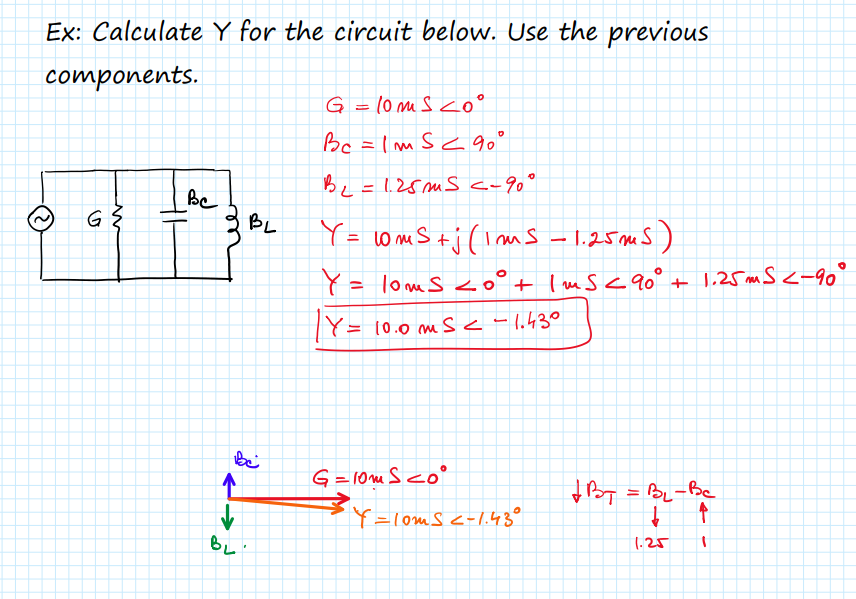 Ex: Calculate Y for the circuit below. Use the previous
components.
G = 10 mS < 0°
Bc = 1 mS < 90°
BL = 1.25 mS < -90°
G
Bc
BL
Y = 10 mS + j (1 mS - 1.25 mS)
Y = 10 mS < 0° + 1 mS < 90° + 1.25 mS < -90°
Y = 10.0 mS < -1.43°
Bc
G = 10 mS < 0°
Y = 10 mS < -1.43°
BL
↓BT = BL - Bc
↓ ↑
1.25 1